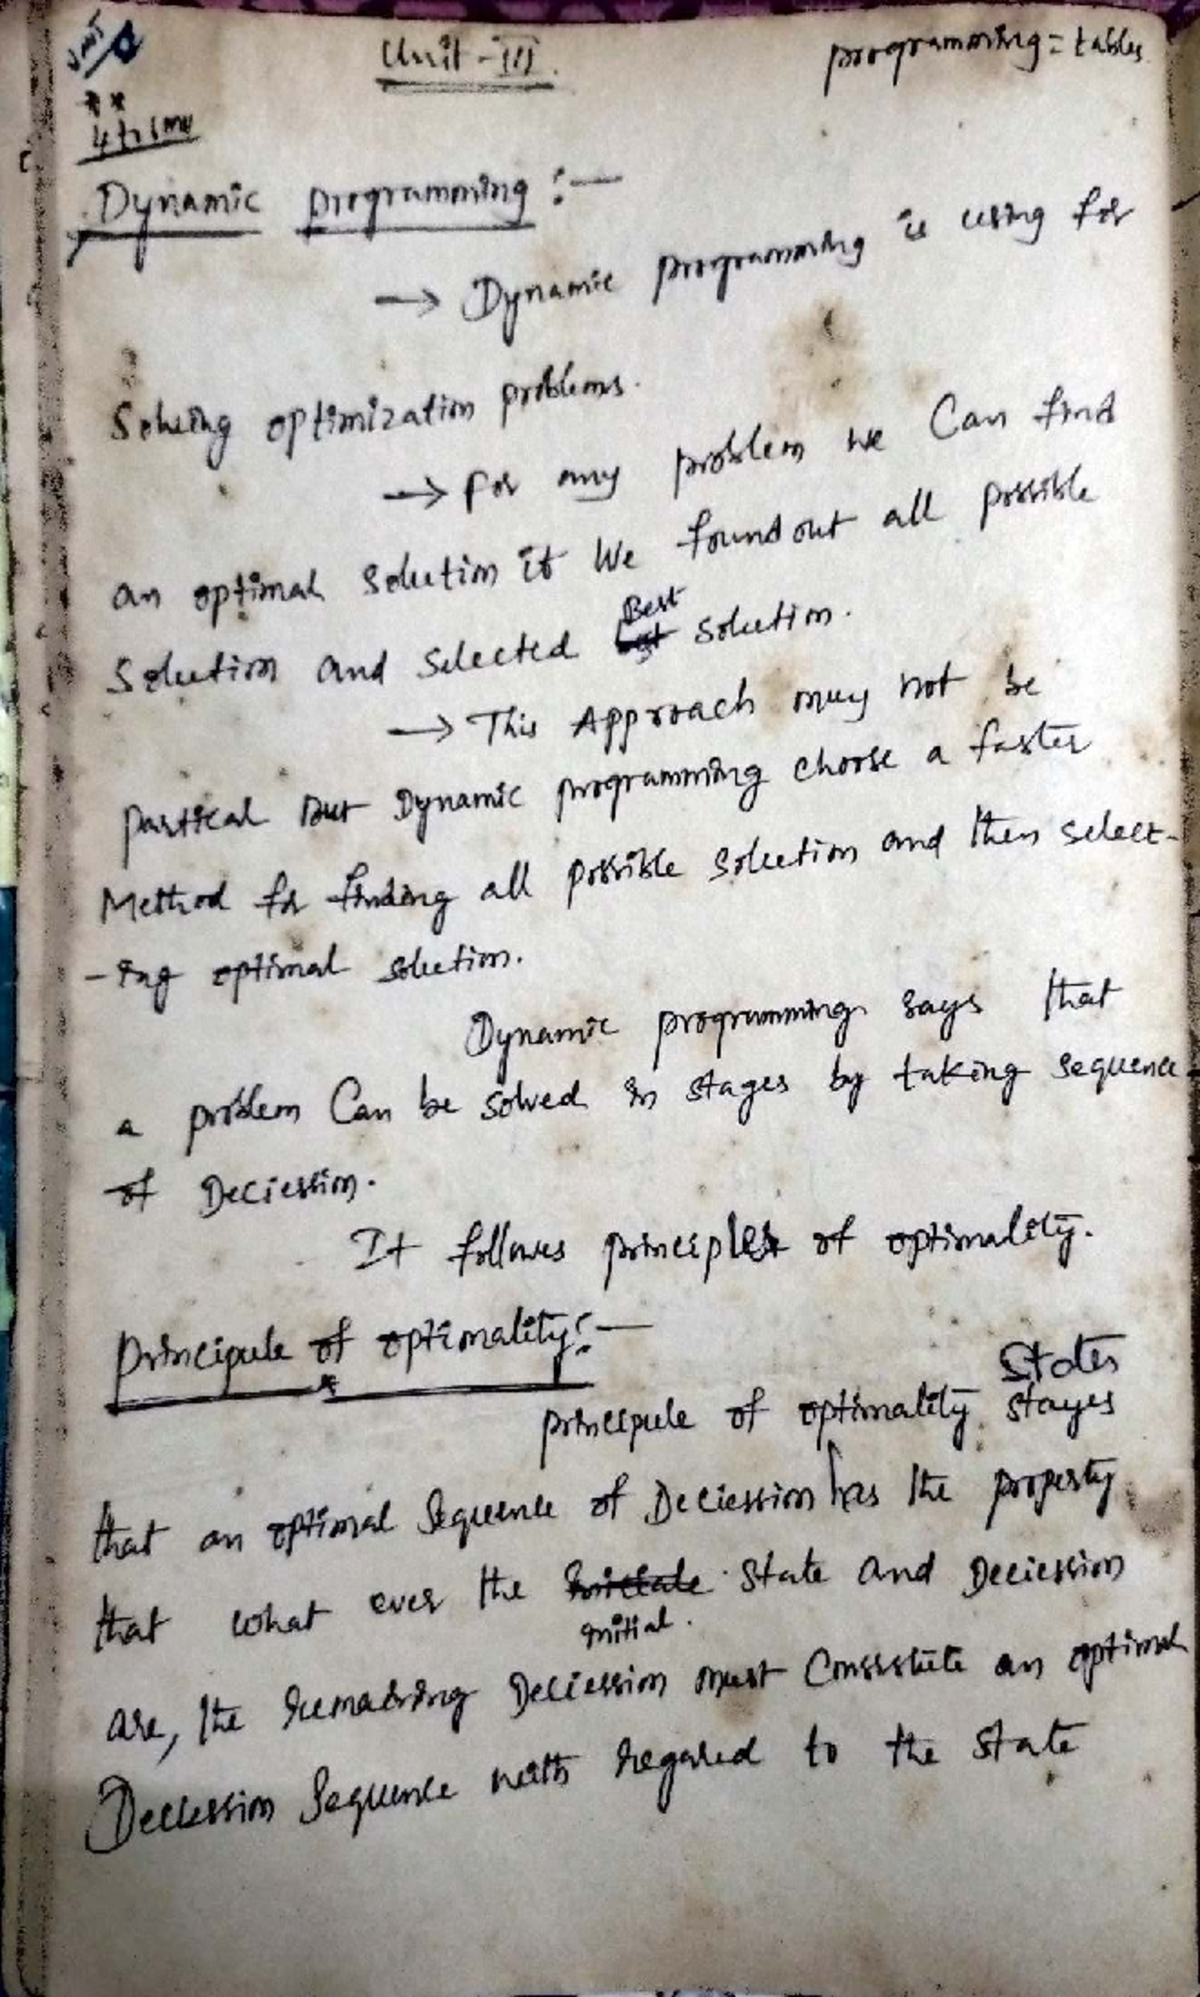 Unit - III.
programming = tables
Dynamic programming :-
→ Dynamic programming is using for
Solving optimization problems.
→ For any problem we Can find
an optimal solution if We found out all possible
Solution and selected Best solution.
→ This Approach may not be
partical but Dynamic programming choose a faster
Method for finding all possible solution and then select-
-ing optimal solution.
Dynamic programming says that
a problem Can be solved in stages by taking sequence
of Deciession.
It follows principles of optimality.
principule of optimality:-
States
principule of optimality stages
that an optimal Sequence of Deciession has the property
that what ever the initiale state and Deciession
initial.
are, the remaining Deciession must Consistute an optimal
Deciession Sequence with regared to the state